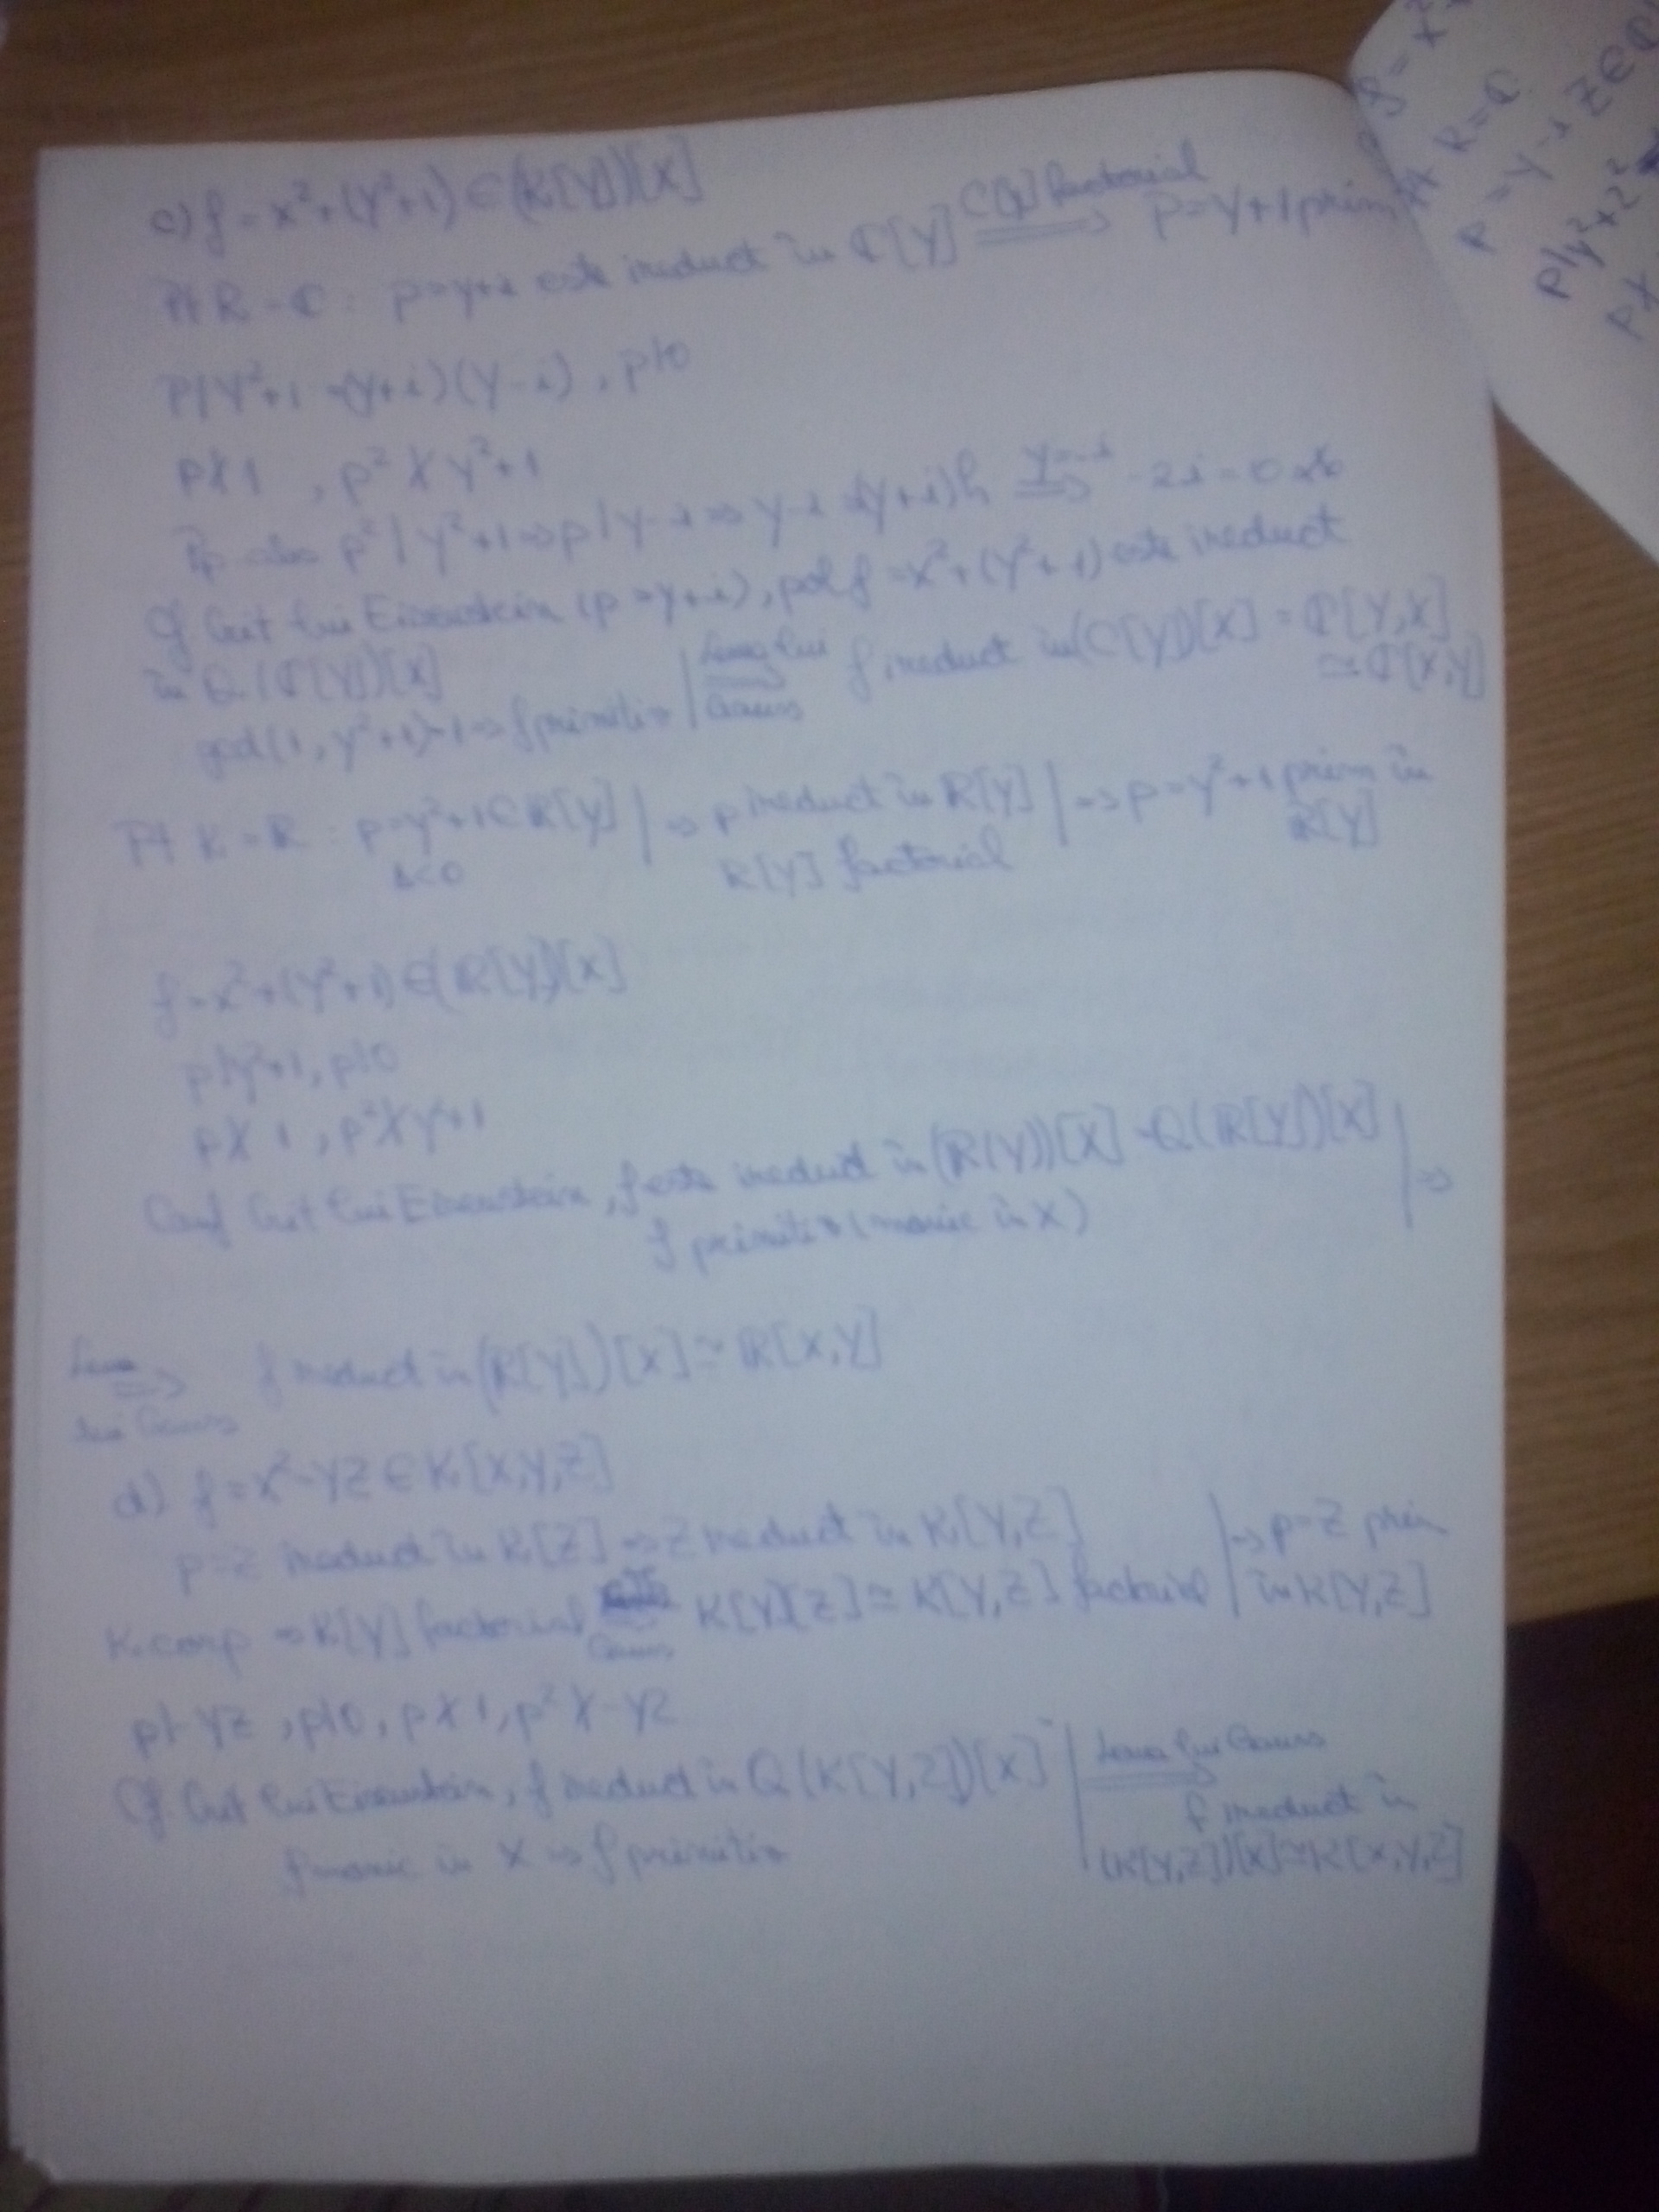 c) f = x² + (y²+1) ∈ (K[Y])[X]
Pt K = ℂ : p = y+i este ireduct în ℂ[Y] ⟹ (ℂ[Y] factorial) p = Y+1 prim
p | Y²+1 = (y+i)(y-i), p|0
p∤1 , p² ∤ y²+1
Pp abs p² | y²+1 ⇒ p | y-i ⇒ y-i = (y+i)h ⟹ (y=-i) -2i = 0 ※
Cf Crit lui Eisenstein (p = y+i), pol f = x² + (y²+1) este ireduct
în Q(ℂ[Y])[X]
gcd(1, y²+1)=1 ⇒ f primitiv | ⟹ (Lema lui Gauss) f ireduct în (ℂ[Y])[X] = ℂ[Y,X]
≃ ℂ[X,Y]
Pt K = ℝ : p = y²+1 ∈ ℝ[Y] | ⇒ p ireduct în ℝ[Y] | ⇒ p = y²+1 prim în
Δ<0 ℝ[Y] factorial ℝ[Y]
f = x² + (y²+1) ∈ (ℝ[Y])[X]
p | y²+1, p|0
p∤1 , p² ∤ y²+1
Conf Crit lui Eisenstein, f este ireduct în (ℝ(Y))[X] = Q(ℝ[Y])[X] | ⇒
f primitiv (monic în X)
⟹ (Lema lui Gauss) f ireduct în (ℝ[Y])[X] ≃ ℝ[X,Y]
d) f = x² - YZ ∈ K[X,Y,Z]
p = Z ireduct în K[Z] ⇒ Z ireduct în K[Y,Z] | ⇒ p = Z prim
K corp ⇒ K[Y] factorial ⟹ (Gauss) K[Y][Z] ≃ K[Y,Z] factorial | în K[Y,Z]
p | -YZ , p|0, p∤1, p² ∤ -YZ
Cf Crit lui Eisenstein, f ireduct în Q(K[Y,Z])[X] | ⟹ Lema lui Gauss
f ireduct în
f monic în X ⇒ f primitiv (K[Y,Z])[X] ≃ K[X,Y,Z]
K = ℂ
p | y²+z²